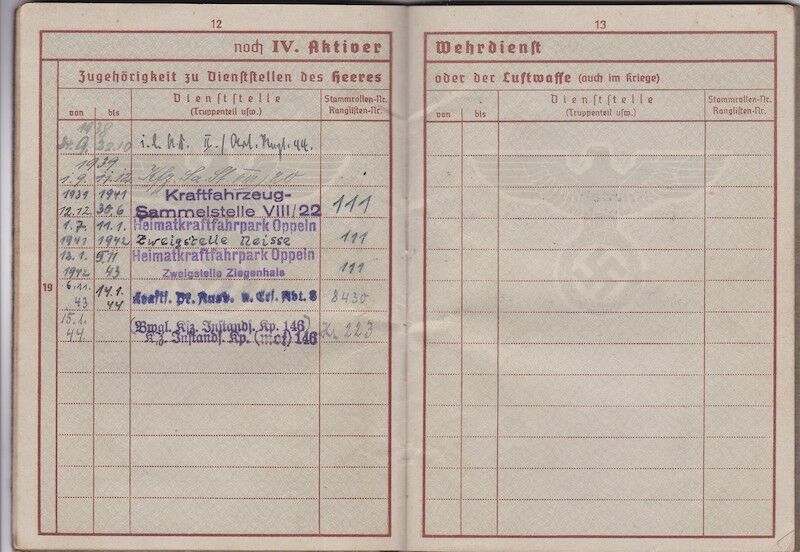 12
noch IV. Aktiver
Zugehörigkeit zu Dienststellen des Heeres
von bis
Dienststelle
(Truppenteil usw.)
Stammrollen-Nr.
Ranglisten-Nr.
1938
22.10
II./ Art. Rgt. 44.
1939
1.9.
1939 1941
12.12 30.6
Kraftfahrzeug-
Sammelstelle VIII/22
111
1.7. 11.1.
1941 1942
Heimatkraftfahrpark Oppeln
Zweigstelle Neisse
111
12.1. 5.11
1942 43
Heimatkraftfahrpark Oppeln
Zweigstelle Ziegenhals
111
19
6.11. 14.1.
43 44
Kraftf. Pk. Ausb. u. Ers. Abt. 8
8430
15.1.
44
(Bwgl. Kfz. Instands. Kp. 146)
Kfz. Instands. Kp. (mot) 146
Kr. 223
13
Wehrdienst
oder der Luftwaffe (auch im Kriege)
von bis
Dienststelle
(Truppenteil usw.)
Stammrollen-Nr.
Ranglisten-Nr.